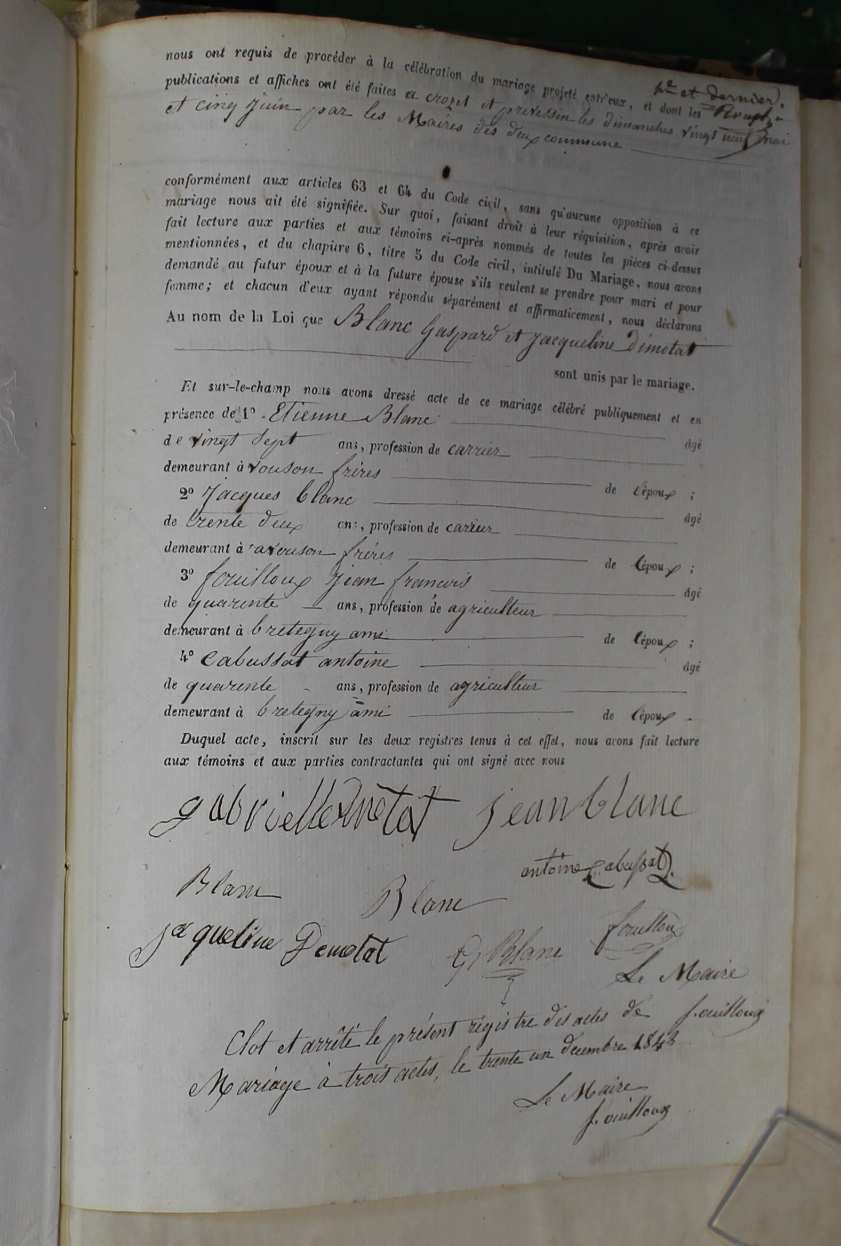 nous ont requis de procéder à la célébration du mariage projeté entr'eux, et dont les
et dernier).
publications et affiches ont été faites a crozet et prevessin les dimanches vingt neuf mai
et cinq juin par les Maires des deux commune
conformément aux articles 63 et 64 du Code civil, sans qu'aucune opposition à ce
mariage nous ait été signifiée. Sur quoi, faisant droit à leur réquisition, après avoir
fait lecture aux parties et aux témoins ci-après nommés de toutes les pièces ci-dessus
mentionnées, et du chapitre 6, titre 5 du Code civil, intitulé Du Mariage, nous avons
demandé au futur époux et à la future épouse s'ils veulent se prendre pour mari et pour
femme; et chacun d'eux ayant répondu séparément et affirmaticement, nous déclarons
Au nom de la Loi que Blanc Gaspard et Jacqueline Dimotat
sont unis par le mariage.
Et sur-le-champ nous avons dressé acte de ce mariage célébré publiquement et en
présence de 1° Etienne Blanc âgé
de vingt sept ans, profession de carrier
demeurant à frères de l'époux ;
2° Jacques blanc âgé
de trente deux ans, profession de carier
demeurant à frères de l'époux ;
3° fouilloux jean francois âgé
de quarente ans, profession de agriculteur
demeurant à bretegny ami de l'époux ;
4° Cabussat antoine âgé
de quarente ans, profession de agriculteur
demeurant à bretegny ami de l'époux
Duquel acte, inscrit sur les deux registres tenus à cet effet, nous avons fait lecture
aux témoins et aux parties contractantes qui ont signé avec nous
gabrielle jean blanc
antoine Cabussat
Blanc Blanc
jacqueline Demotat G Blanc fouilloux
Le Maire
fouilloux
Clot et arrêté le présent régistre des actes de
Mariage à trois actes, le trente un decembre 184
Le Maire
fouilloux